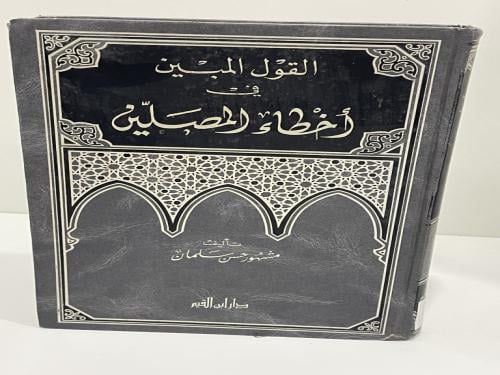 القول المبين
في
أخطاء المصلين
تأليف
مشهور حسن سلمان
دار ابن القيم